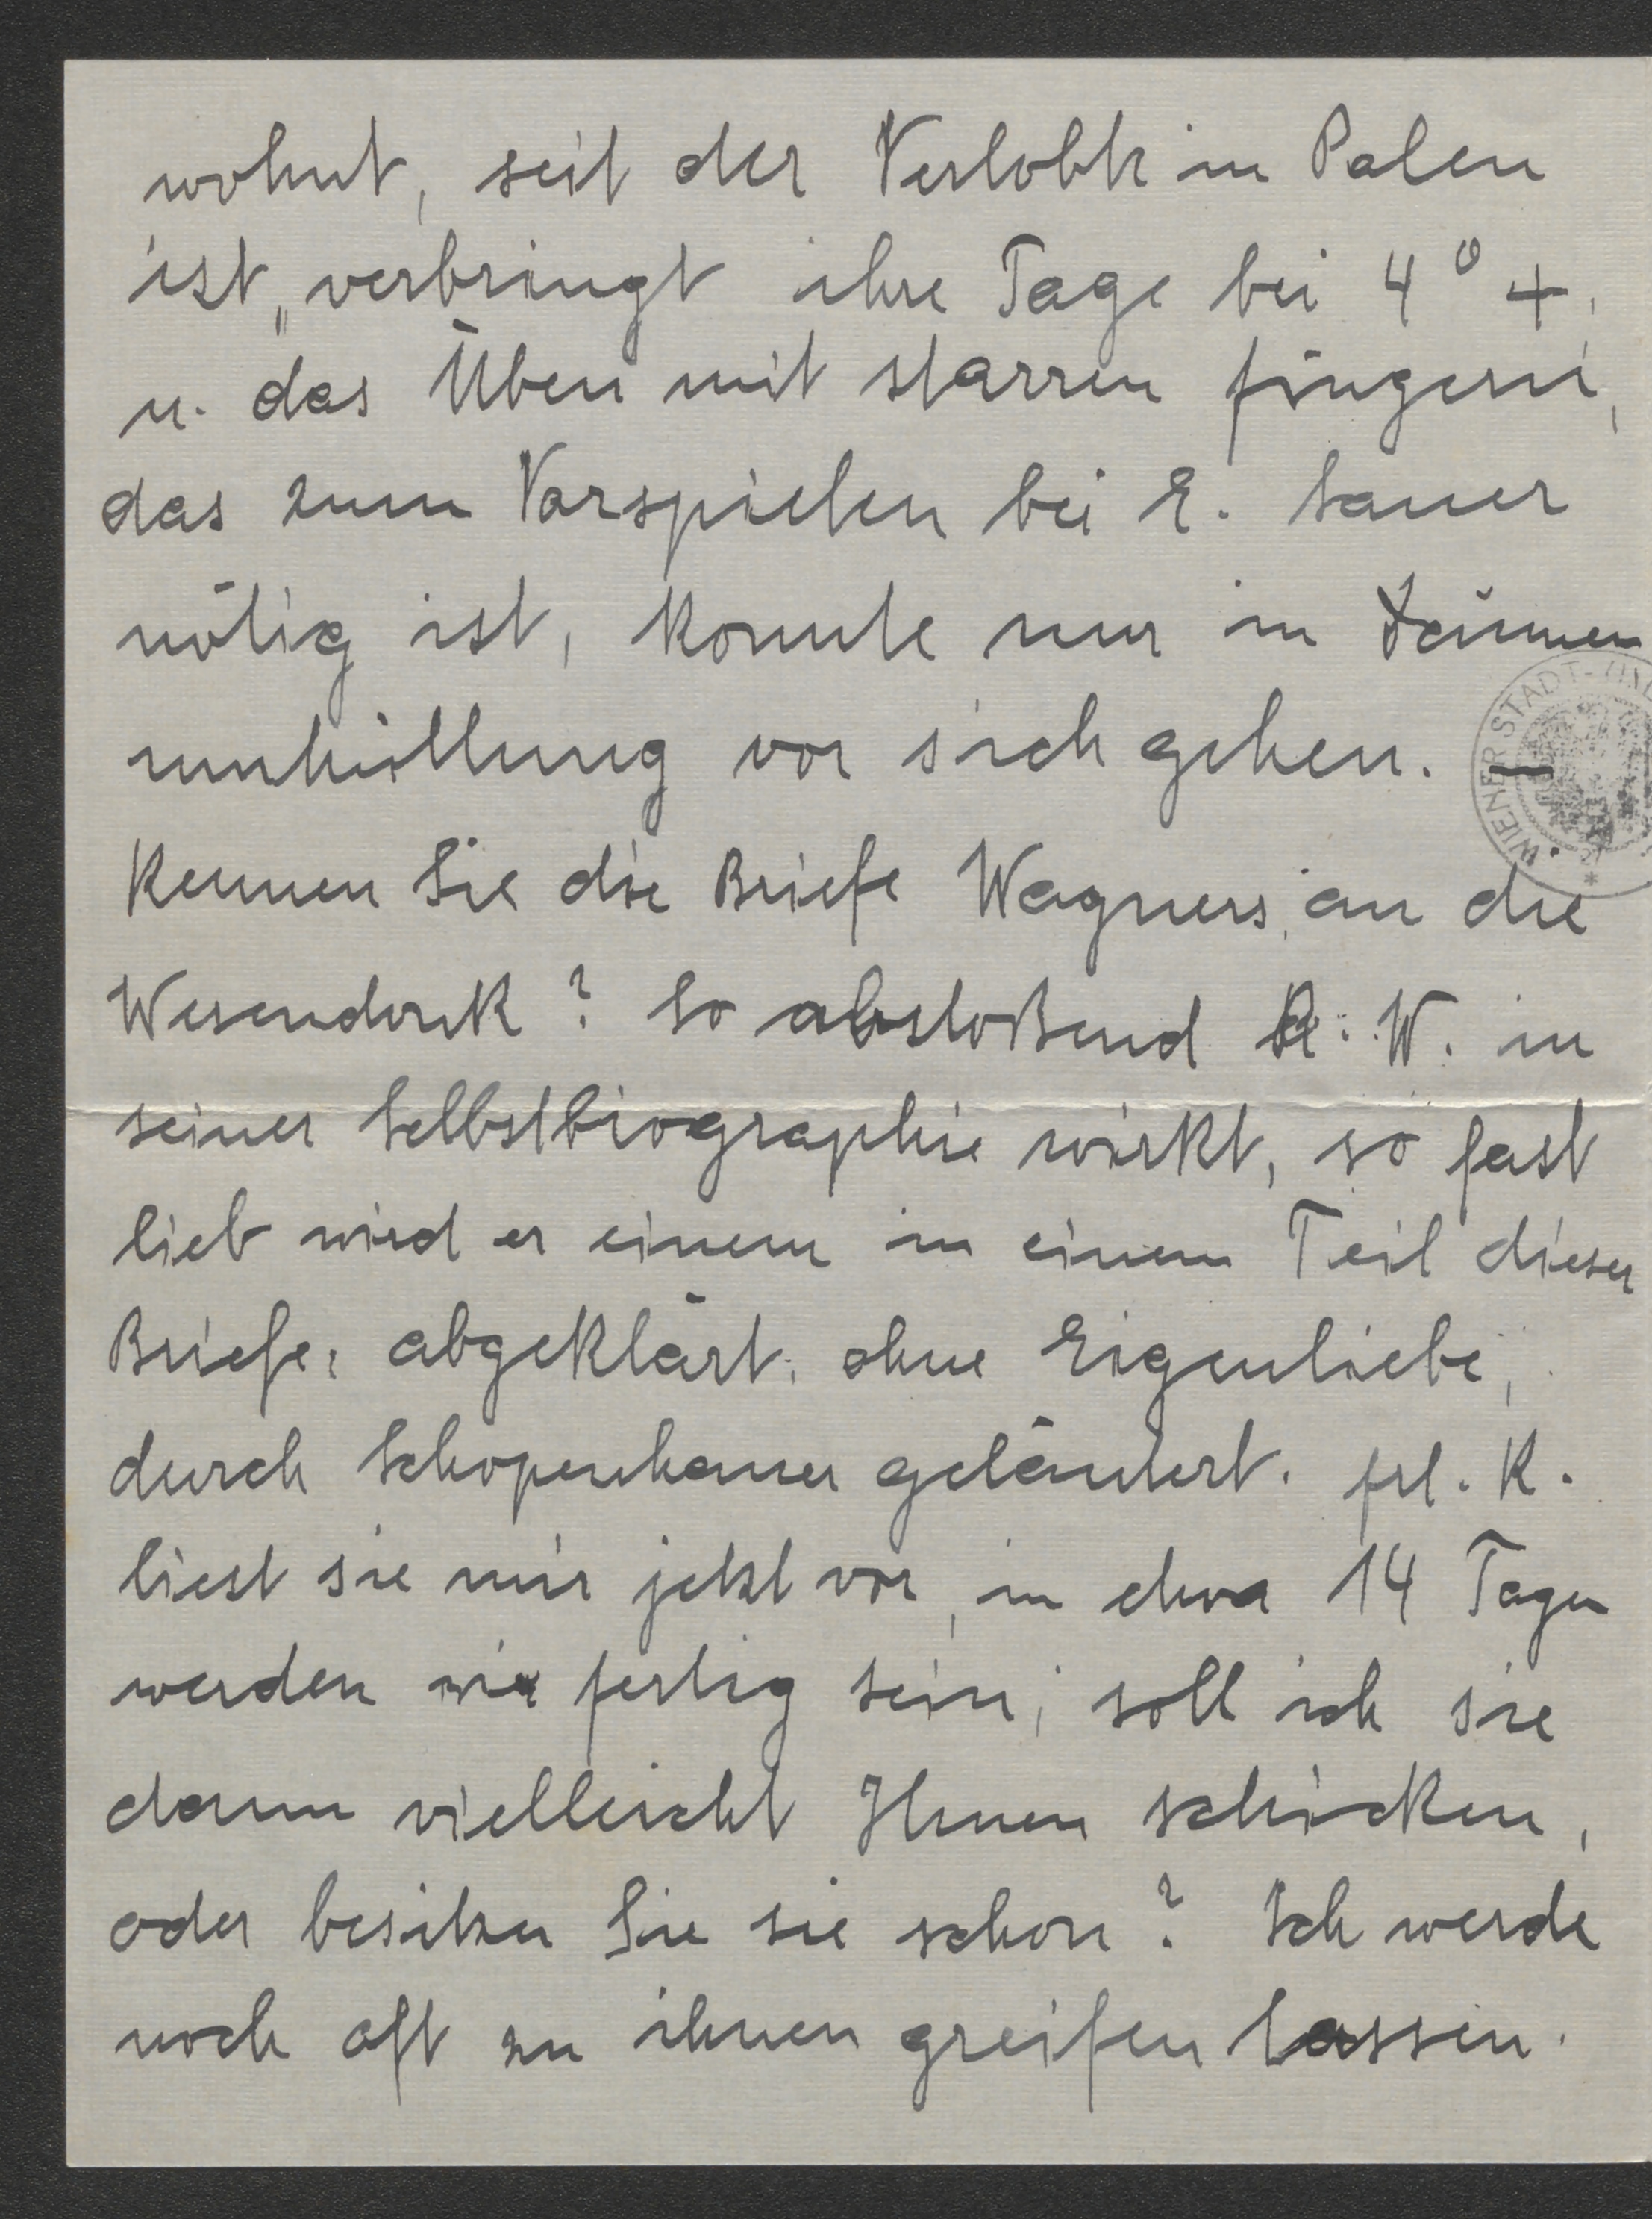 wohnt, seit der Verlobte in Polen
ist, verbringt ihre Tage bei 4° +,
u. das Üben mit starren Fingern,
das zum Vorspielen bei E. Sauer
nötig ist, konnte nur in
umhüllung vor sich gehen. —
WIENER STADT-
Kennen Sie die Briefe Wagners, an die
Wesendonk? So abstoßend R. W. in
seiner Selbstbiographie wirkt, so fast
lieb wird er einem in einem Teil dieser
Briefe, abgeklärt, ohne Eigenliebe,
durch Schopenhauer geläutert. Frl. K.
liest sie mir jetzt vor, in etwa 14 Tagen
werden wir fertig sein; soll ich sie
dann vielleicht Ihnen schicken,
oder besitzen Sie sie schon? Ich werde
noch oft zu ihnen greifen lassen.